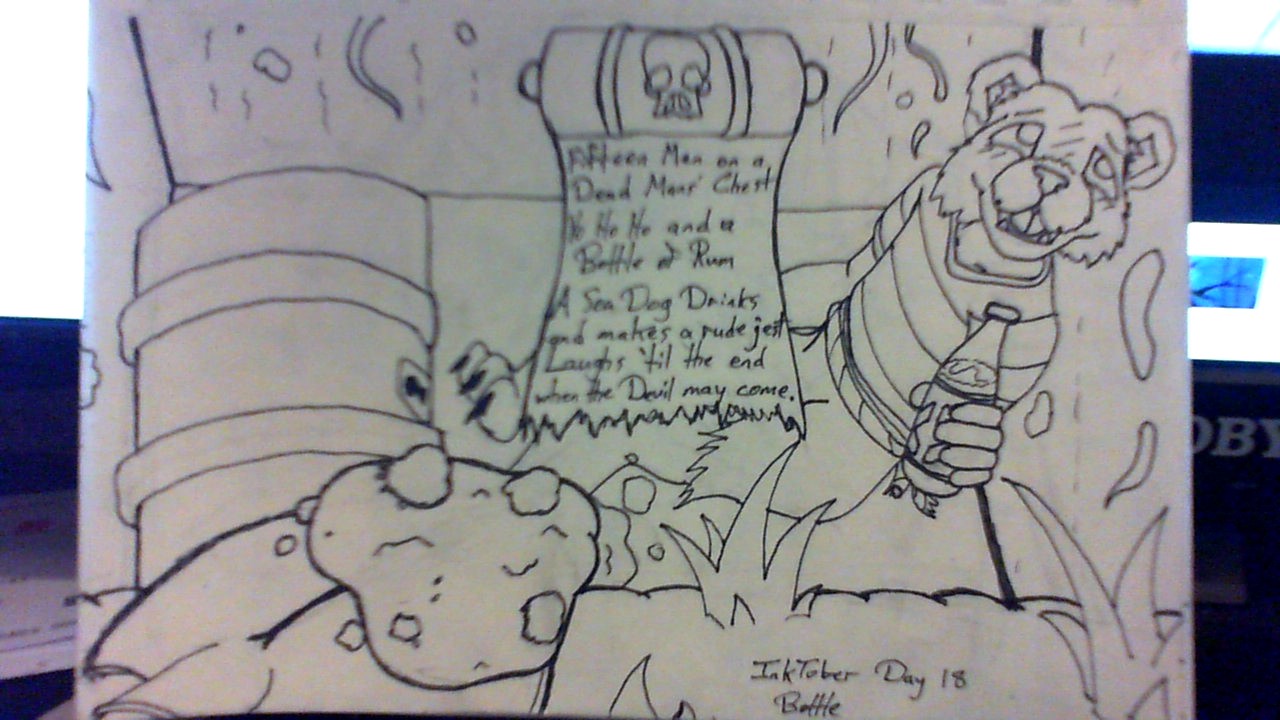 Fifteen Men on a
Dead Mans' Chest
Yo Ho Ho and a
Bottle of Rum
A Sea Dog Drinks
and makes a rude jest
Laughs 'til the end
when the Devil may come.
InkTober Day 18
Bottle
OBY